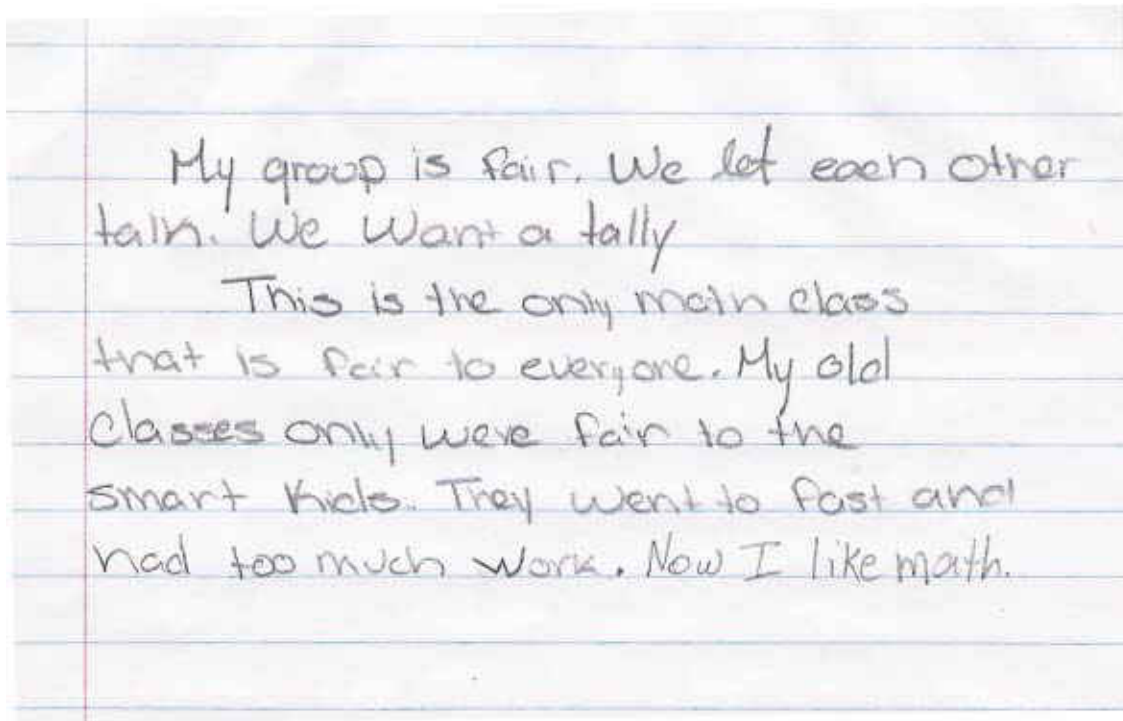 My group is fair. We let each other
talk. We Want a tally
This is the only math class
that is fair to everyone. My old
Classes only were fair to the
smart kids. They went to fast and
had too much work. Now I like math.